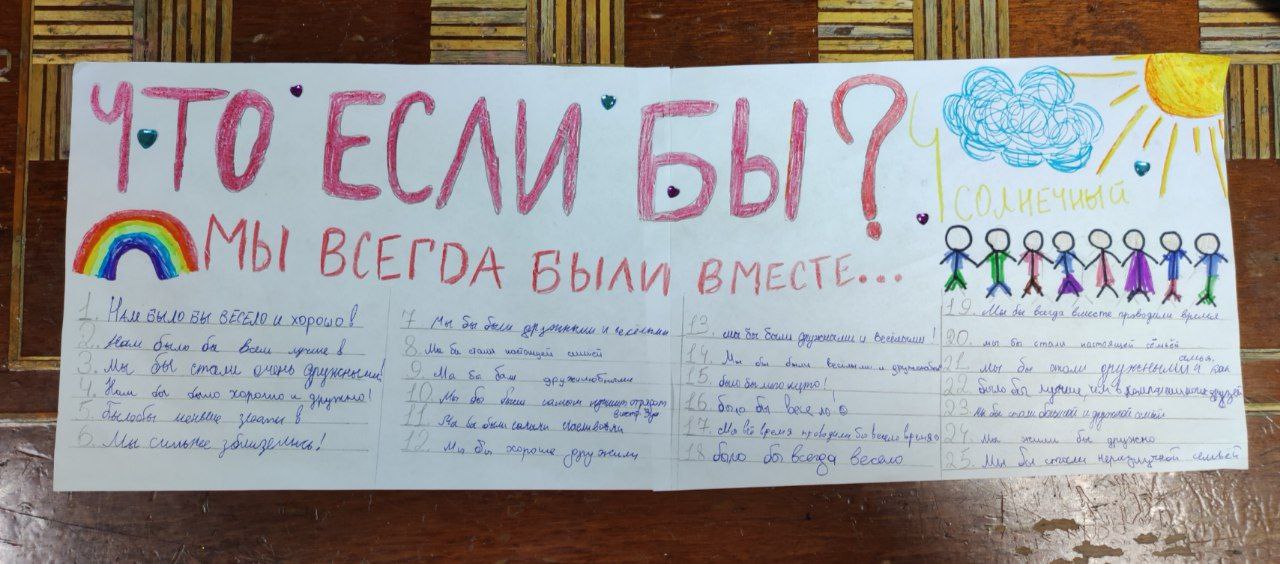 ЧТО ЕСЛИ БЫ?
МЫ ВСЕГДА БЫЛИ ВМЕСТЕ...
Ч
СОЛНЕЧНЫЙ
1. Нам было бы весело и хорошо в
2. Нам было бы всем лучше в
3. Мы бы стали очень дружными!
4. Нам бы было хорошо и дружно!
5. былобы меньше
6. Мы сильнее зблизелись!
7 Мы бы были и весёлыми
8. Мы бы стали настоящей семьёй
9. Мы бы были дружелюбными
10. Мы бы были самым лучшим отрядом
11. Мы бы были самыми
12. Мы бы хорошо дружили
13. мы бы были дружными и весёлыми!
14. Мы бы были весёлыми и
15. было бы много
16 было бы весело!
17. Мы всё время проводили бы весело время
18 было бы всегда весело
19. Мы бы всегда вместе проводили время
20. мы бы стали настоящей семьёй
21. мы бы стали дружными и как семья.
22. было бы лучше, чем в компании друзей
23 Мы бы стали большой и дружной семьёй
24. Мы жили бы дружно
25. Мы бы стали неразлучной семьёй